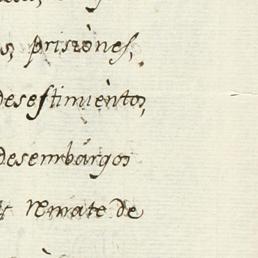 s, prisiònes,
desestimiento,
desembàrgos
remate de